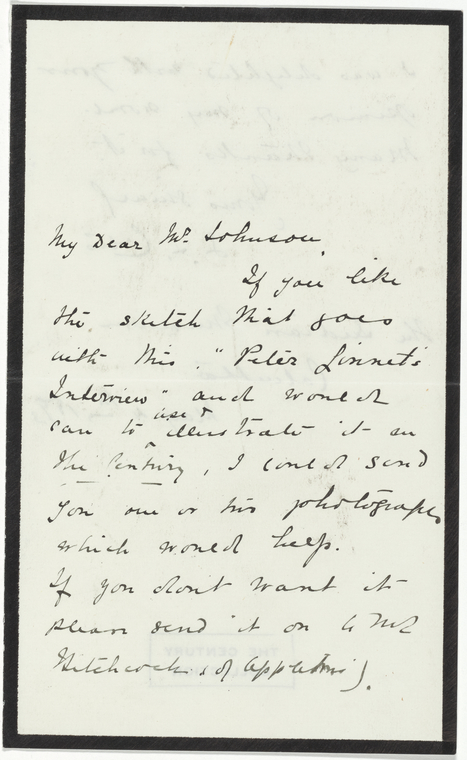 My Dear Mr. Johnson,
If you like
the sketch that goes
with this, "Peter Linnet's
Interview" and would
use &
care to illustrate it in
The Century, I could send
you one or two photographs
which would help.
If you don't want it
please send it on to Mr
Hitchcock (of Appletons).
THE CENTURY